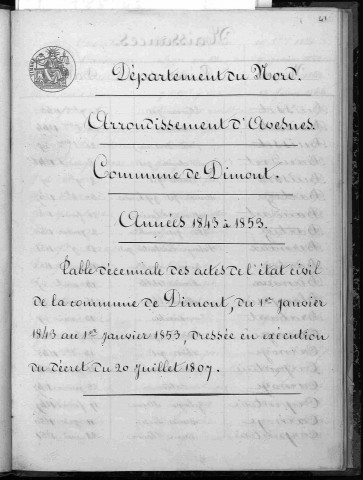 Département du Nord.
Arrondissement d'Avesnes.
Commune de Dimont.
Années 1843 à 1853.
Table décennale des actes de l'état civil
de la commune de Dimont, du 1er Janvier
1843 au 1er Janvier 1853, dressée en exécution
du décret du 20 Juillet 1807.